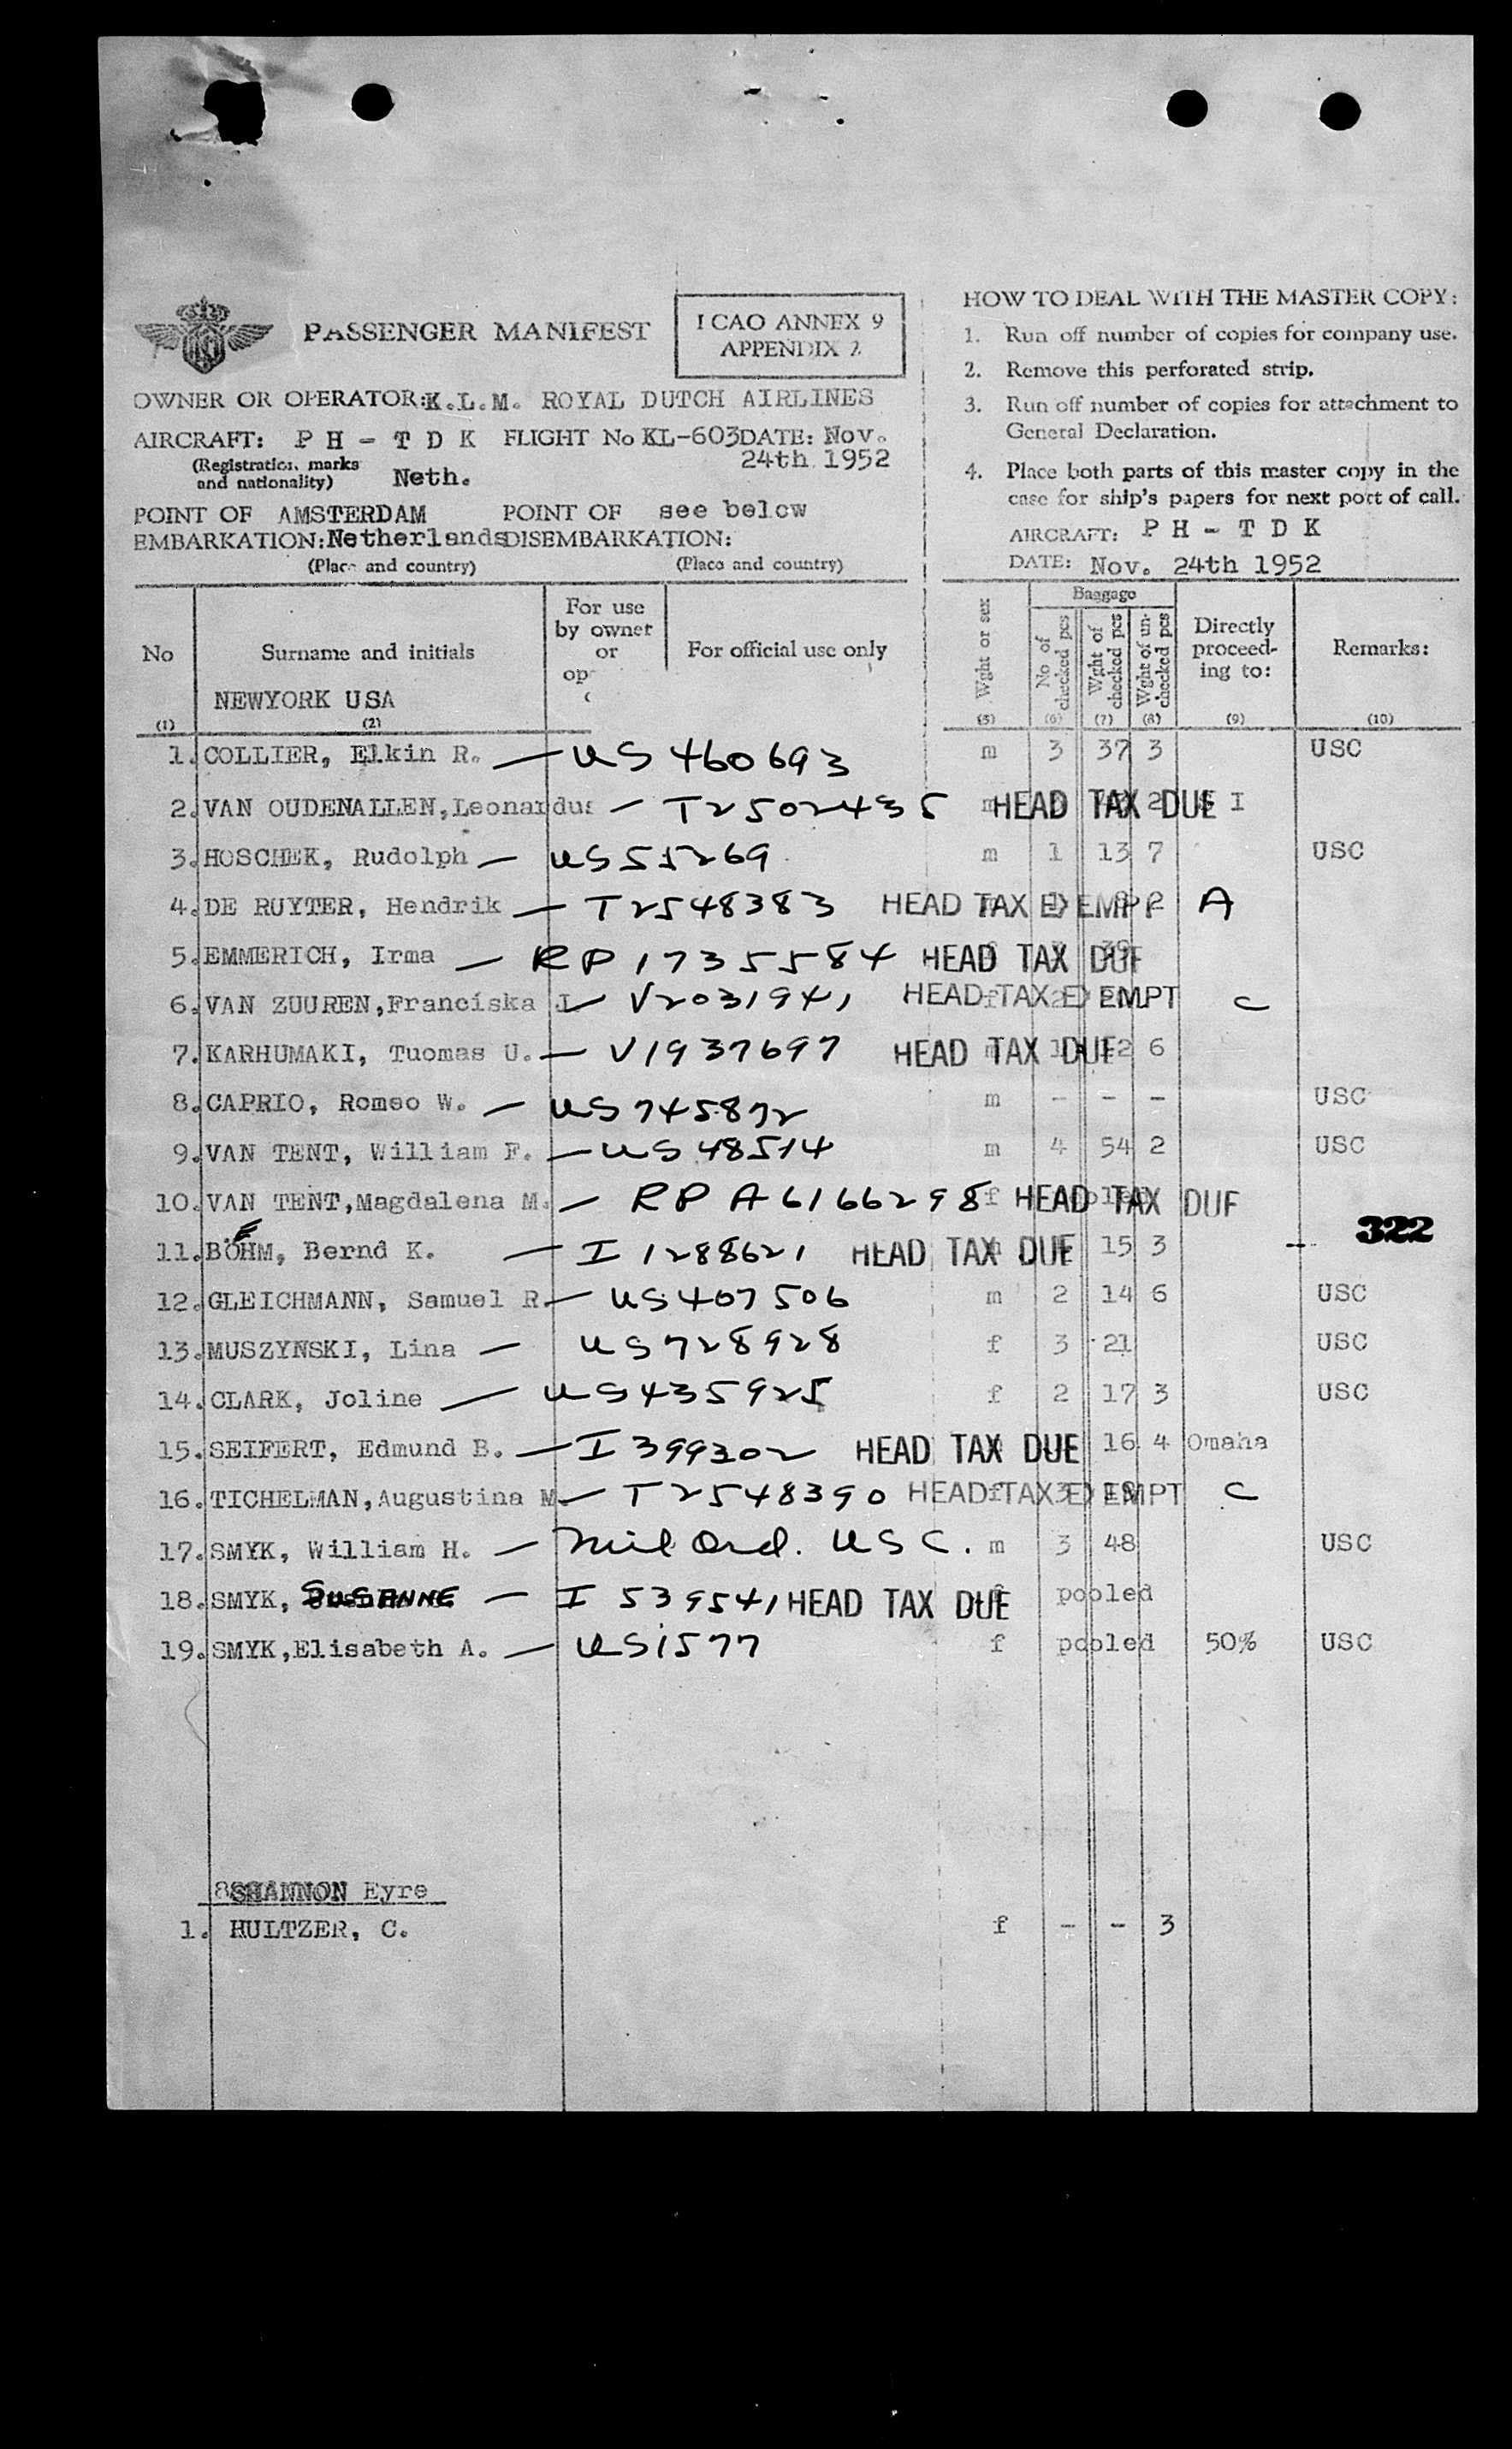 PASSENGER MANIFEST
ICAO ANNEX 9
APPENDIX 2
OWNER OR OPERATOR: K.L.M. ROYAL DUTCH AIRLINES
AIRCRAFT: P H - T D K FLIGHT No KL-603 DATE: Nov. 24th 1952
(Registration marks and nationality) Neth.
POINT OF EMBARKATION: AMSTERDAM Netherlands POINT OF DISEMBARKATION: see below
(Place and country) (Place and country)
HOW TO DEAL WITH THE MASTER COPY:
1. Run off number of copies for company use.
2. Remove this perforated strip.
3. Run off number of copies for attachment to
General Declaration.
4. Place both parts of this master copy in the
case for ship's papers for next port of call.
AIRCRAFT: P H - T D K
DATE: Nov. 24th 1952
No Surname and initials For use by owner or op For official use only Wght or sex Baggage No of checked pcs Wght of checked pcs Wght of un-checked pcs Directly proceed-ing to: Remarks:
NEWYORK USA
(1) (2) (5) (6) (7) (8) (9) (10)
1. COLLIER, Elkin R. — US 460693 m 3 37 3 USC
2. VAN OUDENALLEN, Leonardus — T2502435 m HEAD TAX DUE 2 I
3. HOSCHEK, Rudolph — US 55269 m 1 13 7 USC
4. DE RUYTER, Hendrik — T2548383 HEAD TAX EXEMPT 2 A
5. EMMERICH, Irma — RP 1735584 HEAD TAX DUE
6. VAN ZUUREN, Franciska — V2031941 HEAD TAX EXEMPT f C
7. KARHUMAKI, Tuomas U. — V1937697 HEAD TAX DUE 6
8. CAPRIO, Romeo W. — US 745872 m - - - USC
9. VAN TENT, William F. — US 48514 m 4 54 2 USC
10. VAN TENT, Magdalena M. — RP A6166298 f HEAD TAX DUE
322
11. BÖEHM, Bernd K. — I 1288621 HEAD TAX DUE 15 3 --
12. GLEICHMANN, Samuel R. — US 407506 m 2 14 6 USC
13. MUSZYNSKI, Lina — US 728928 f 3 21 USC
14. CLARK, Joline — US 435925 f 2 17 3 USC
15. SEIFERT, Edmund B. — I 399302 HEAD TAX DUE 16 4 Omaha
16. TICHELMAN, Augustina M. — T2548390 HEAD TAX EXEMPT f C
17. SMYK, William H. — Mil Ord. USC. m 3 48 USC
18. SMYK, SUSANNE — I 539541 HEAD TAX DUE pooled
19. SMYK, Elisabeth A. — US 1577 f pooled 50% USC
SHANNON Eyre
1. HULTZER, C. f - - 3